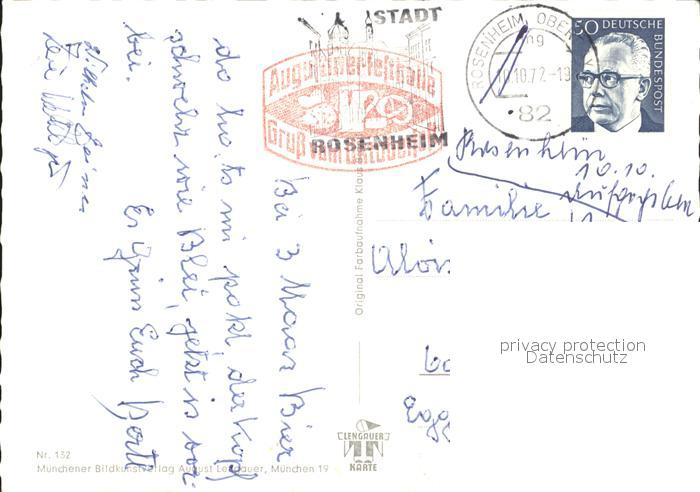 STADT
ROSENHEIM
Augustinerfesthalle
Gruß vom Oktoberfest
ROSENHEIM, OBERBAY
10.10.72-19
82
50 DEUTSCHE
BUNDESPOST
Rosenheim
10.10.
Familie
Alois
Egg
privacy protection
Datenschutz
Bei 3 Maas Bier
da ho.ts mi pakt, der Kopf
schwer wie Blei, jetzt is vor-
bei.
Es grüss Euch
Original Farbaufnahme Klaus
LENGAUER
KARTE
Nr. 132
Münchener Bildkunstverlag August Lengauer, München 19